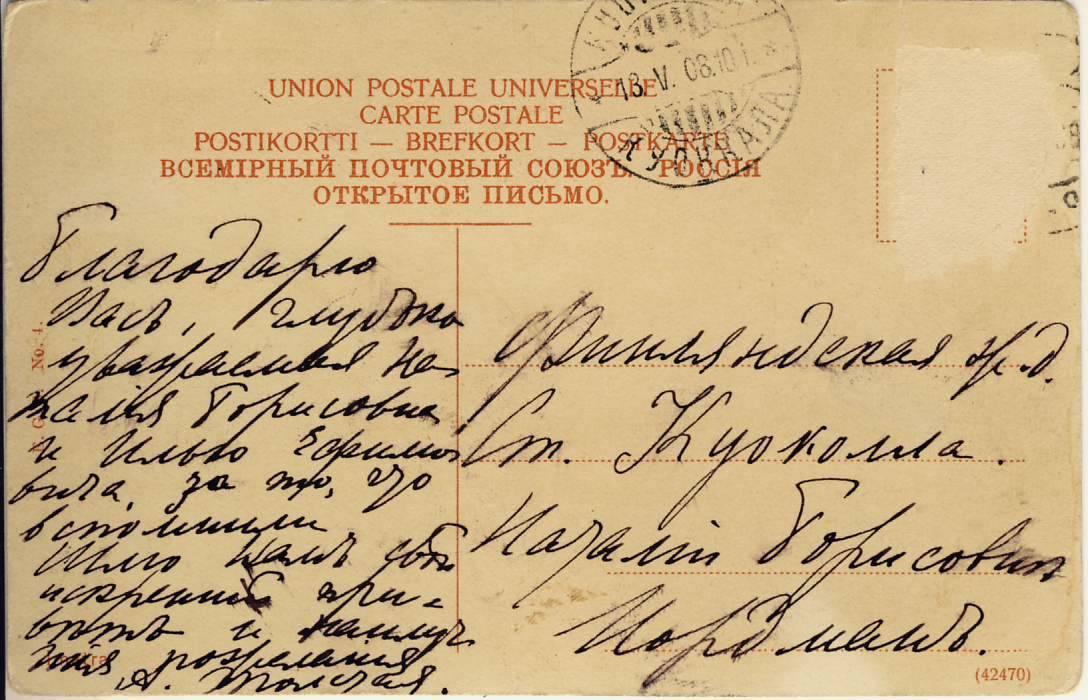 UNION POSTALE UNIVERSELLE
CARTE POSTALE
POSTIKORTTI — BREFKORT — POSTKARTE
ВСЕМІРНЫЙ ПОЧТОВЫЙ СОЮЗЪ. РОССІЯ
ОТКРЫТОЕ ПИСЬМО.
18.V.08.10 I.
КУОККАЛА
Благодарю
Васъ, глубоко
уважаемая На-
талія Борисовна
и Илью Ефимо-
вича, за то, что
вспомнили
Шлю Вамъ обо
искренний при-
вѣтъ и наилуч
шія пожеланія
А. Толстая.
Финляндская ж.д.
Ст. Куоколла.
Наталіи Борисовнѣ
Нордманъ.
No. 4.
(42470)